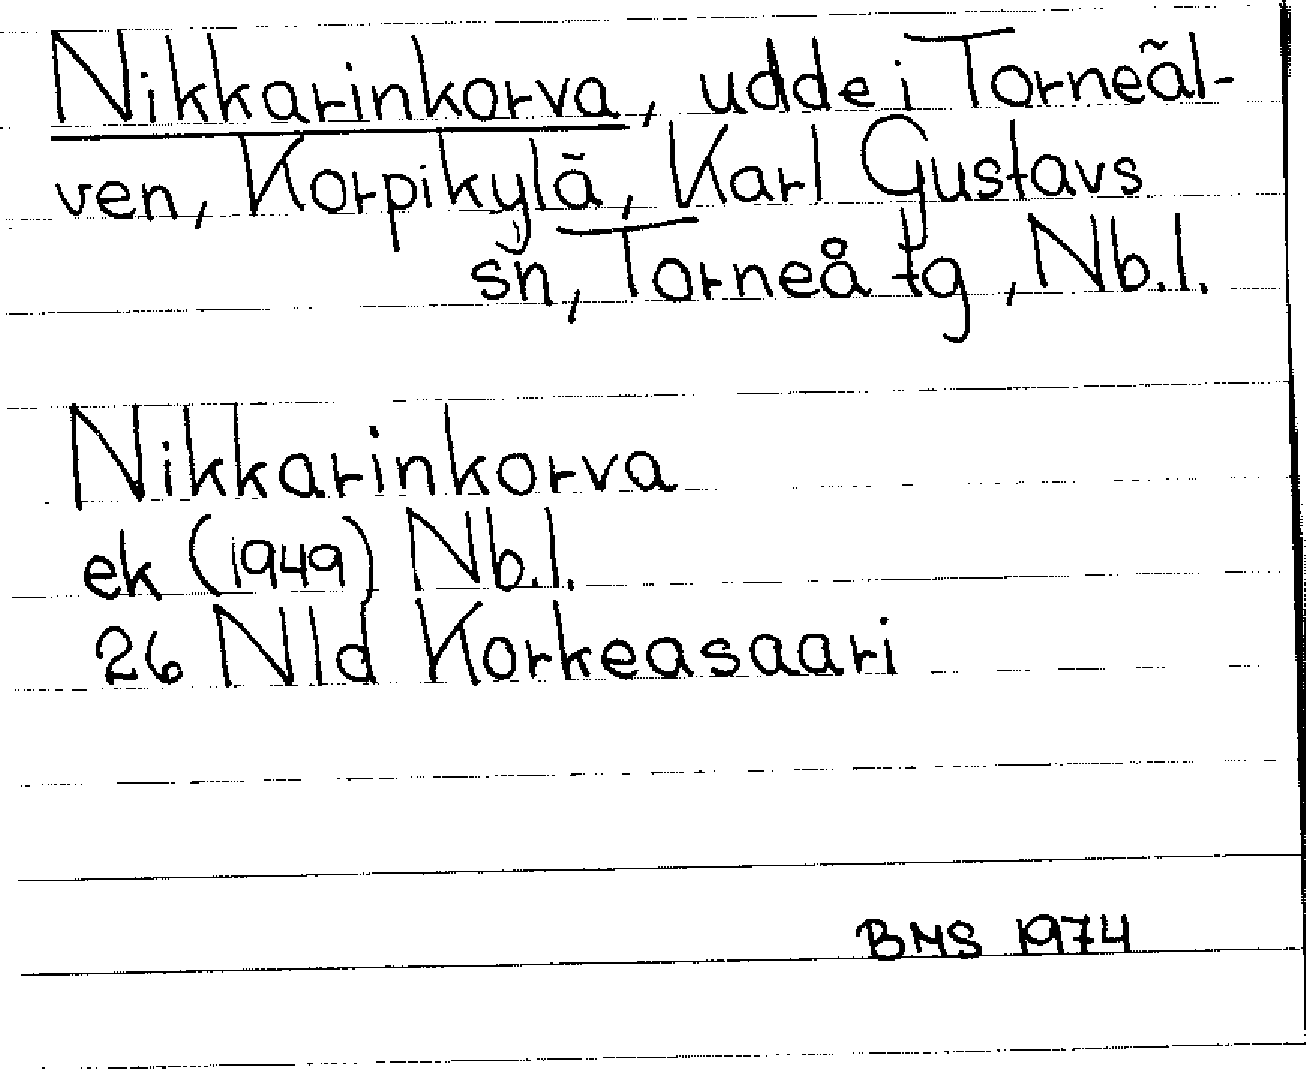 Nikkarinkorva, udde i Torneäl-
ven, Korpikylä, Karl Gustavs
sn, Torneå tg, Nb.l.
Nikkarinkorva
ek (1949) Nb.l.
26 Nld Korkeasaari
BMS 1974